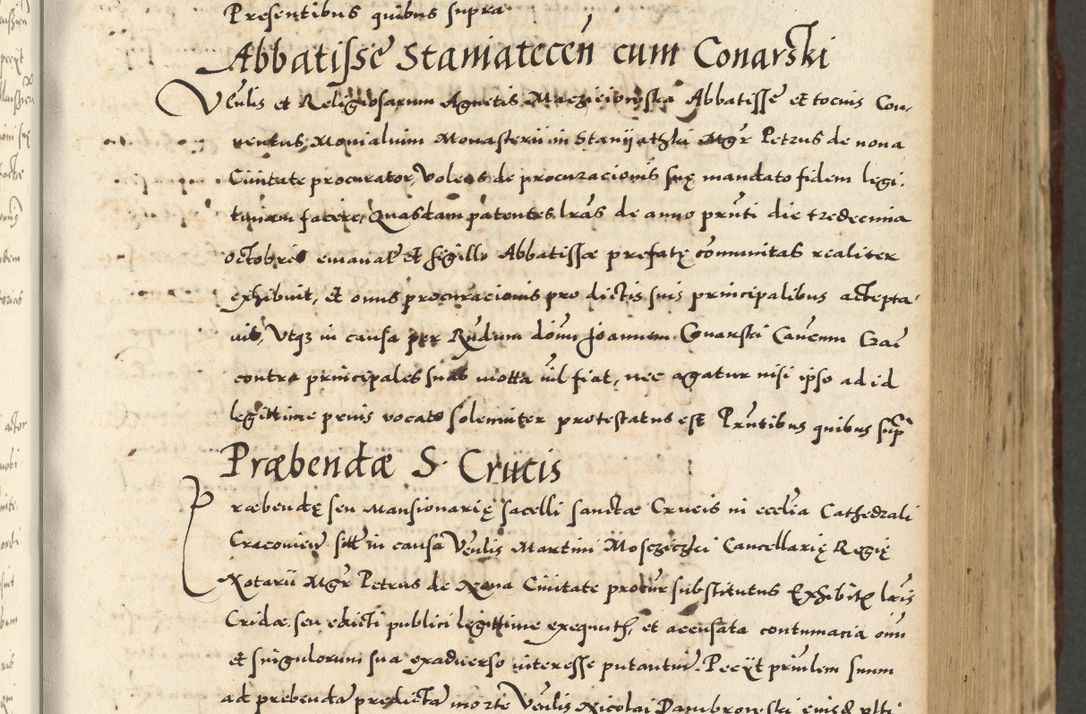 Presentibus quibus supra
Abbatissę Staniatecen̄ cum Conarski
Venlis et Religiosarum Agnetis Abbatissę et tocuis Con-
ventus Monialium Monasterii in Staniiathki Mgr Petrus de nova
Ciuitate procurator, Volens de procuracionis suę mandato fidem legi,
timam facere, Quasdam patentes lras de anno prnti die tredecima
octobris emanat et sigillo Abbatissae prefatę communitas realiter
exhibuit, et onus procuracionis pro dictis suis principalibus accepta-
uit, Vtqz in causa per Rndum dom̄ Joannem Conarski Canc̄um Crac̄
contra principales suas motta nil fiat, nec agatur nisi ipso ad id
legittime prius vocato solemniter protestatus est Prntibus quibus supr
Præbendæ S. Crucis
Præbendę seu Mansionarię sacelli sanctae Crucis in ecclia Cathedrali
Cracovien̄ sitę in causa Venlis Martini Cancellarię Regię
Notarii Mgr Petrus de Nova Ciuitate procur substitutus Exhibitis lris
Cridae seu edicti publici legittime exequuti, et accusata contumacia om̄
et singulorum sua exaduerso interesse putantium. Petiit priuilem suum
ad prebendam predictam morte Venlis Nicolai Dambrowski eiusd vlti